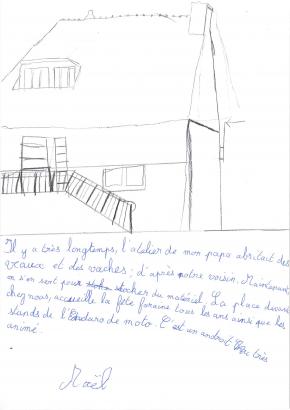 Il y a très longtemps, l'atelier de mon papa abritait des
veaux et des vaches ; d'après notre voisin. Maintenant
on s'en sert pour stocher du matériel. La place devant
chez nous, accueille la fête foraine tous les ans ainsi que les
stands de l'Enduro de moto. C'est un endroit très
animé.
Maël